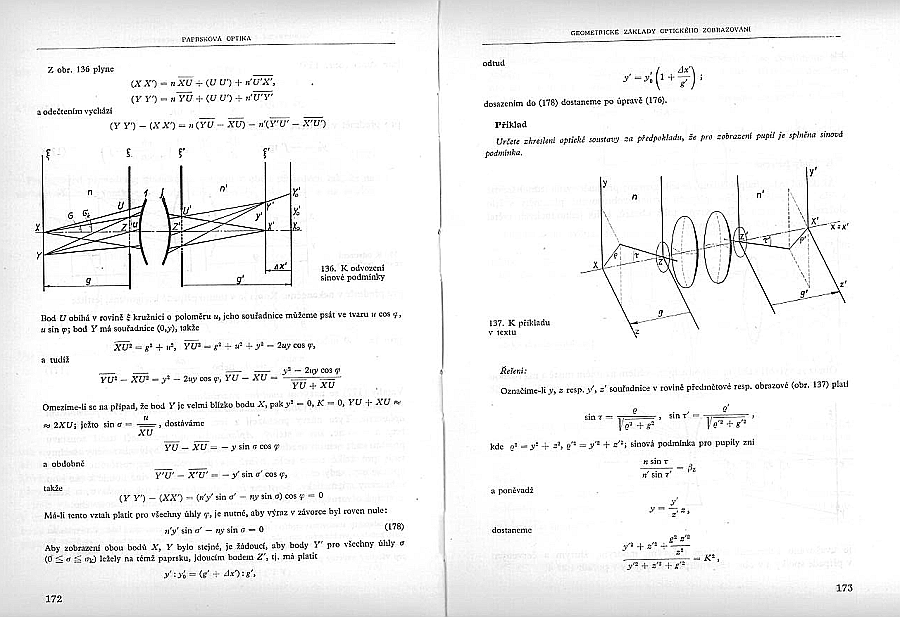 PAPRSKOVÁ OPTIKA
Z obr. 136 plyne
(X X') = n XU + (U U') + n'U'X',
(Y Y') = n YU + (U U') + n'U'Y'
a odečtením vychází
(Y Y') − (X X') = n (YU − XU) − n'(Y'U' − X'U')
ξ ξ ξ' ξ'
n n'
U U' Y' Y₀'
X Z u Z' y' X' X₀
Y
g g' Δx'
136. K odvození
sinové podmínky
Bod U obíhá v rovině ξ kružnici o poloměru u, jeho souřadnice můžeme psát ve tvaru u cos φ,
u sin φ; bod Y má souřadnice (0,y), takže
XU² = g² + u², YU² = g² + u² + y² − 2uy cos φ,
a tudíž
YU² − XU² = y² − 2uy cos φ, YU − XU = y² − 2uy cos φ / YU + XU
Omezíme-li se na případ, že bod Y je velmi blízko bodu X, pak y² = 0, K = 0, YU + XU ≈
≈ 2XU; ježto sin σ = u / XU, dostáváme
YU − XU = − y sin σ cos φ
a obdobně
Y'U' − X'U' = − y' sin σ' cos φ,
takže
(Y Y') − (XX') = (n'y' sin σ' − ny sin σ) cos φ = 0
Má-li tento vztah platit pro všechny úhly φ, je nutné, aby výraz v závorce byl roven nule:
n'y' sin σ' − ny sin σ = 0 (178)
Aby zobrazení obou bodů X, Y bylo stejné, je žádoucí, aby body Y' pro všechny úhly σ
ležely na témž paprsku, jdoucím bodem Z', tj. má platit
y' : y₀' = (g' + Δx') : g',
172
GEOMETRICKÉ ZÁKLADY OPTICKÉHO ZOBRAZOVÁNÍ
odtud
y' = y₀' (1 + Δx' / g') ;
dosazením do (178) dostaneme po úpravě (176).
Příklad
Určete zkreslení optické soustavy za předpokladu, že pro zobrazení pupil je splněna sinová
podmínka.
y n n' y'
X ρ τ Z Z' τ' ρ' X' x ≡ x'
g g' z'
z
137. K příkladu
v textu
Řešení:
Označíme-li y, z resp. y', z' souřadnice v rovině předmětové resp. obrazové (obr. 137) platí
sin τ = ρ / √ρ² + g² , sin τ' = ρ' / √ρ'² + g'² ,
kde ρ² = y² + z², ρ'² = y'² + z'²; sinová podmínka pro pupily zní
n sin τ / n' sin τ' = β_z
a poněvadž
y = y' / z' z ,
dostaneme
y'² + z'² + g² z'² / z² / y'² + z'² + g'² = K²,
173